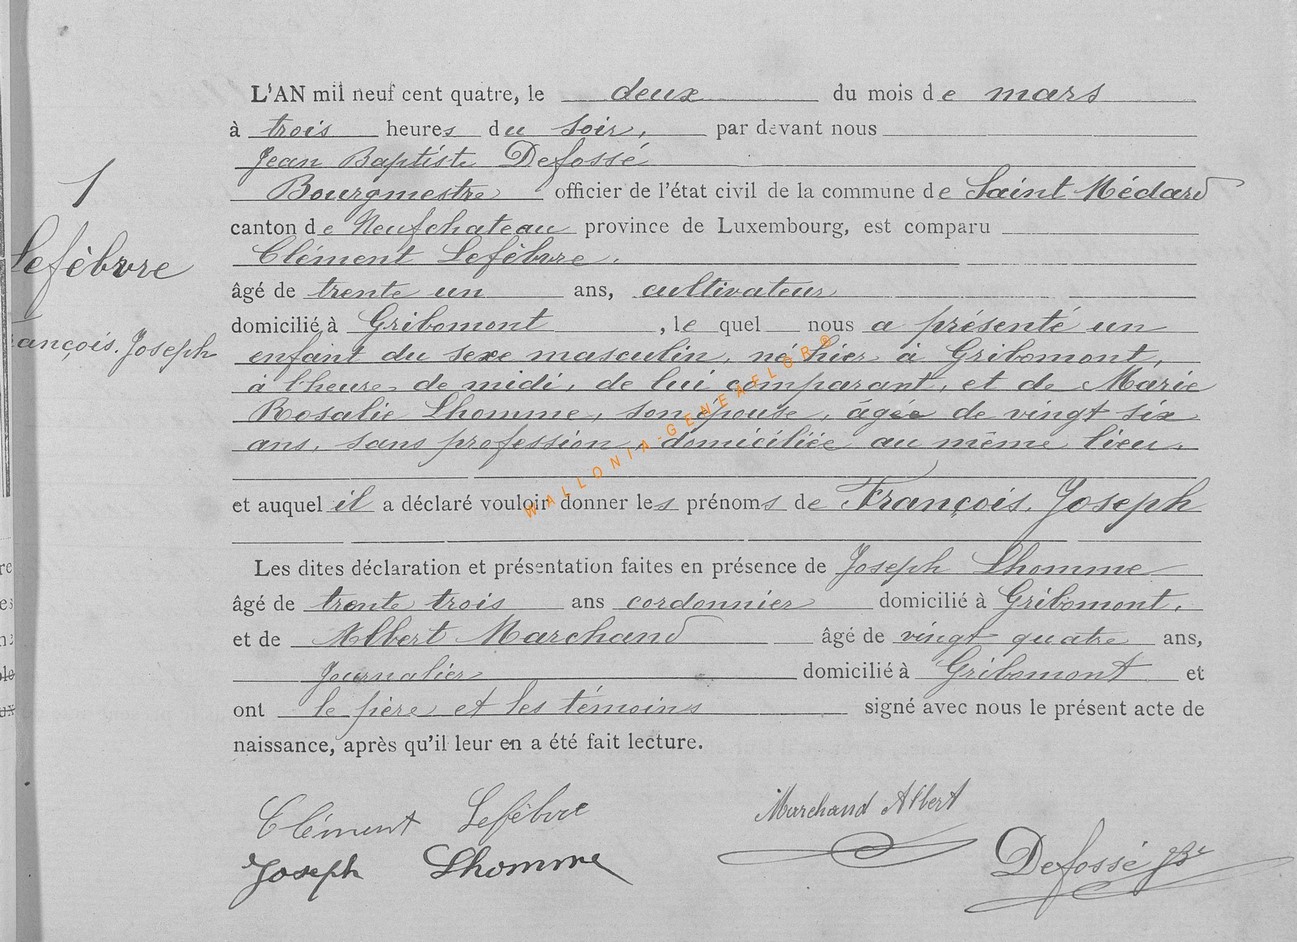 L'AN mil neuf cent quatre, le deux du mois de mars
à trois heures du soir, par devant nous
Jean Baptiste Defossé
1
Bourgmestre officier de l'état civil de la commune de Saint Médard
canton de Neufchateau province de Luxembourg, est comparu
Lefèbvre
Clément Lefèbvre.
âgé de trente un ans, cultivateur
domicilié à Gribomont, le quel nous a présenté un
ançois. Joseph
enfant du sexe masculin, né hier à Gribomont,
à l'heure de midi, de lui comparant, et de Marie
Rosalie Lhomme, son epouse, âgée de vingt six
ans, sans profession, domiciliée au même lieu.
WALLONIA-GENEAFLOR®
et auquel il a déclaré vouloir donner les prénoms de François. Joseph
Les dites déclaration et présentation faites en présence de Joseph Lhomme
âgé de trente trois ans cordonnier domicilié à Gribomont.
et de Albert Marchand âgé de vingt quatre ans,
Journalier domicilié à Gribomont et
ont le père et les témoins signé avec nous le présent acte de
naissance, après qu'il leur en a été fait lecture.
Clément Lefèbvre
Marchand Albert
Joseph Lhomme
Defossé JBte